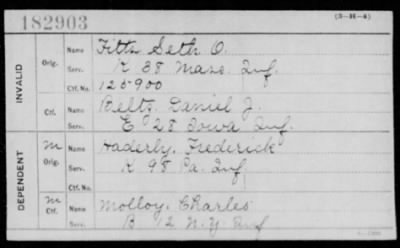 182903
(3-H-4)
INVALID
Orig. Name Fitts Seth O.
Serv. K 38 Mass. Inf.
Ctf. No. 125900
Ctf. Name Belts, Daniel J.
Serv. E 28 Iowa Inf.
DEPENDENT
M Orig. Name Haderly, Frederick
Serv. K 98 Pa. Inf
Ctf. No.
M Ctf. Name Molloy, Charles
Serv. B 12 N.Y. Inf